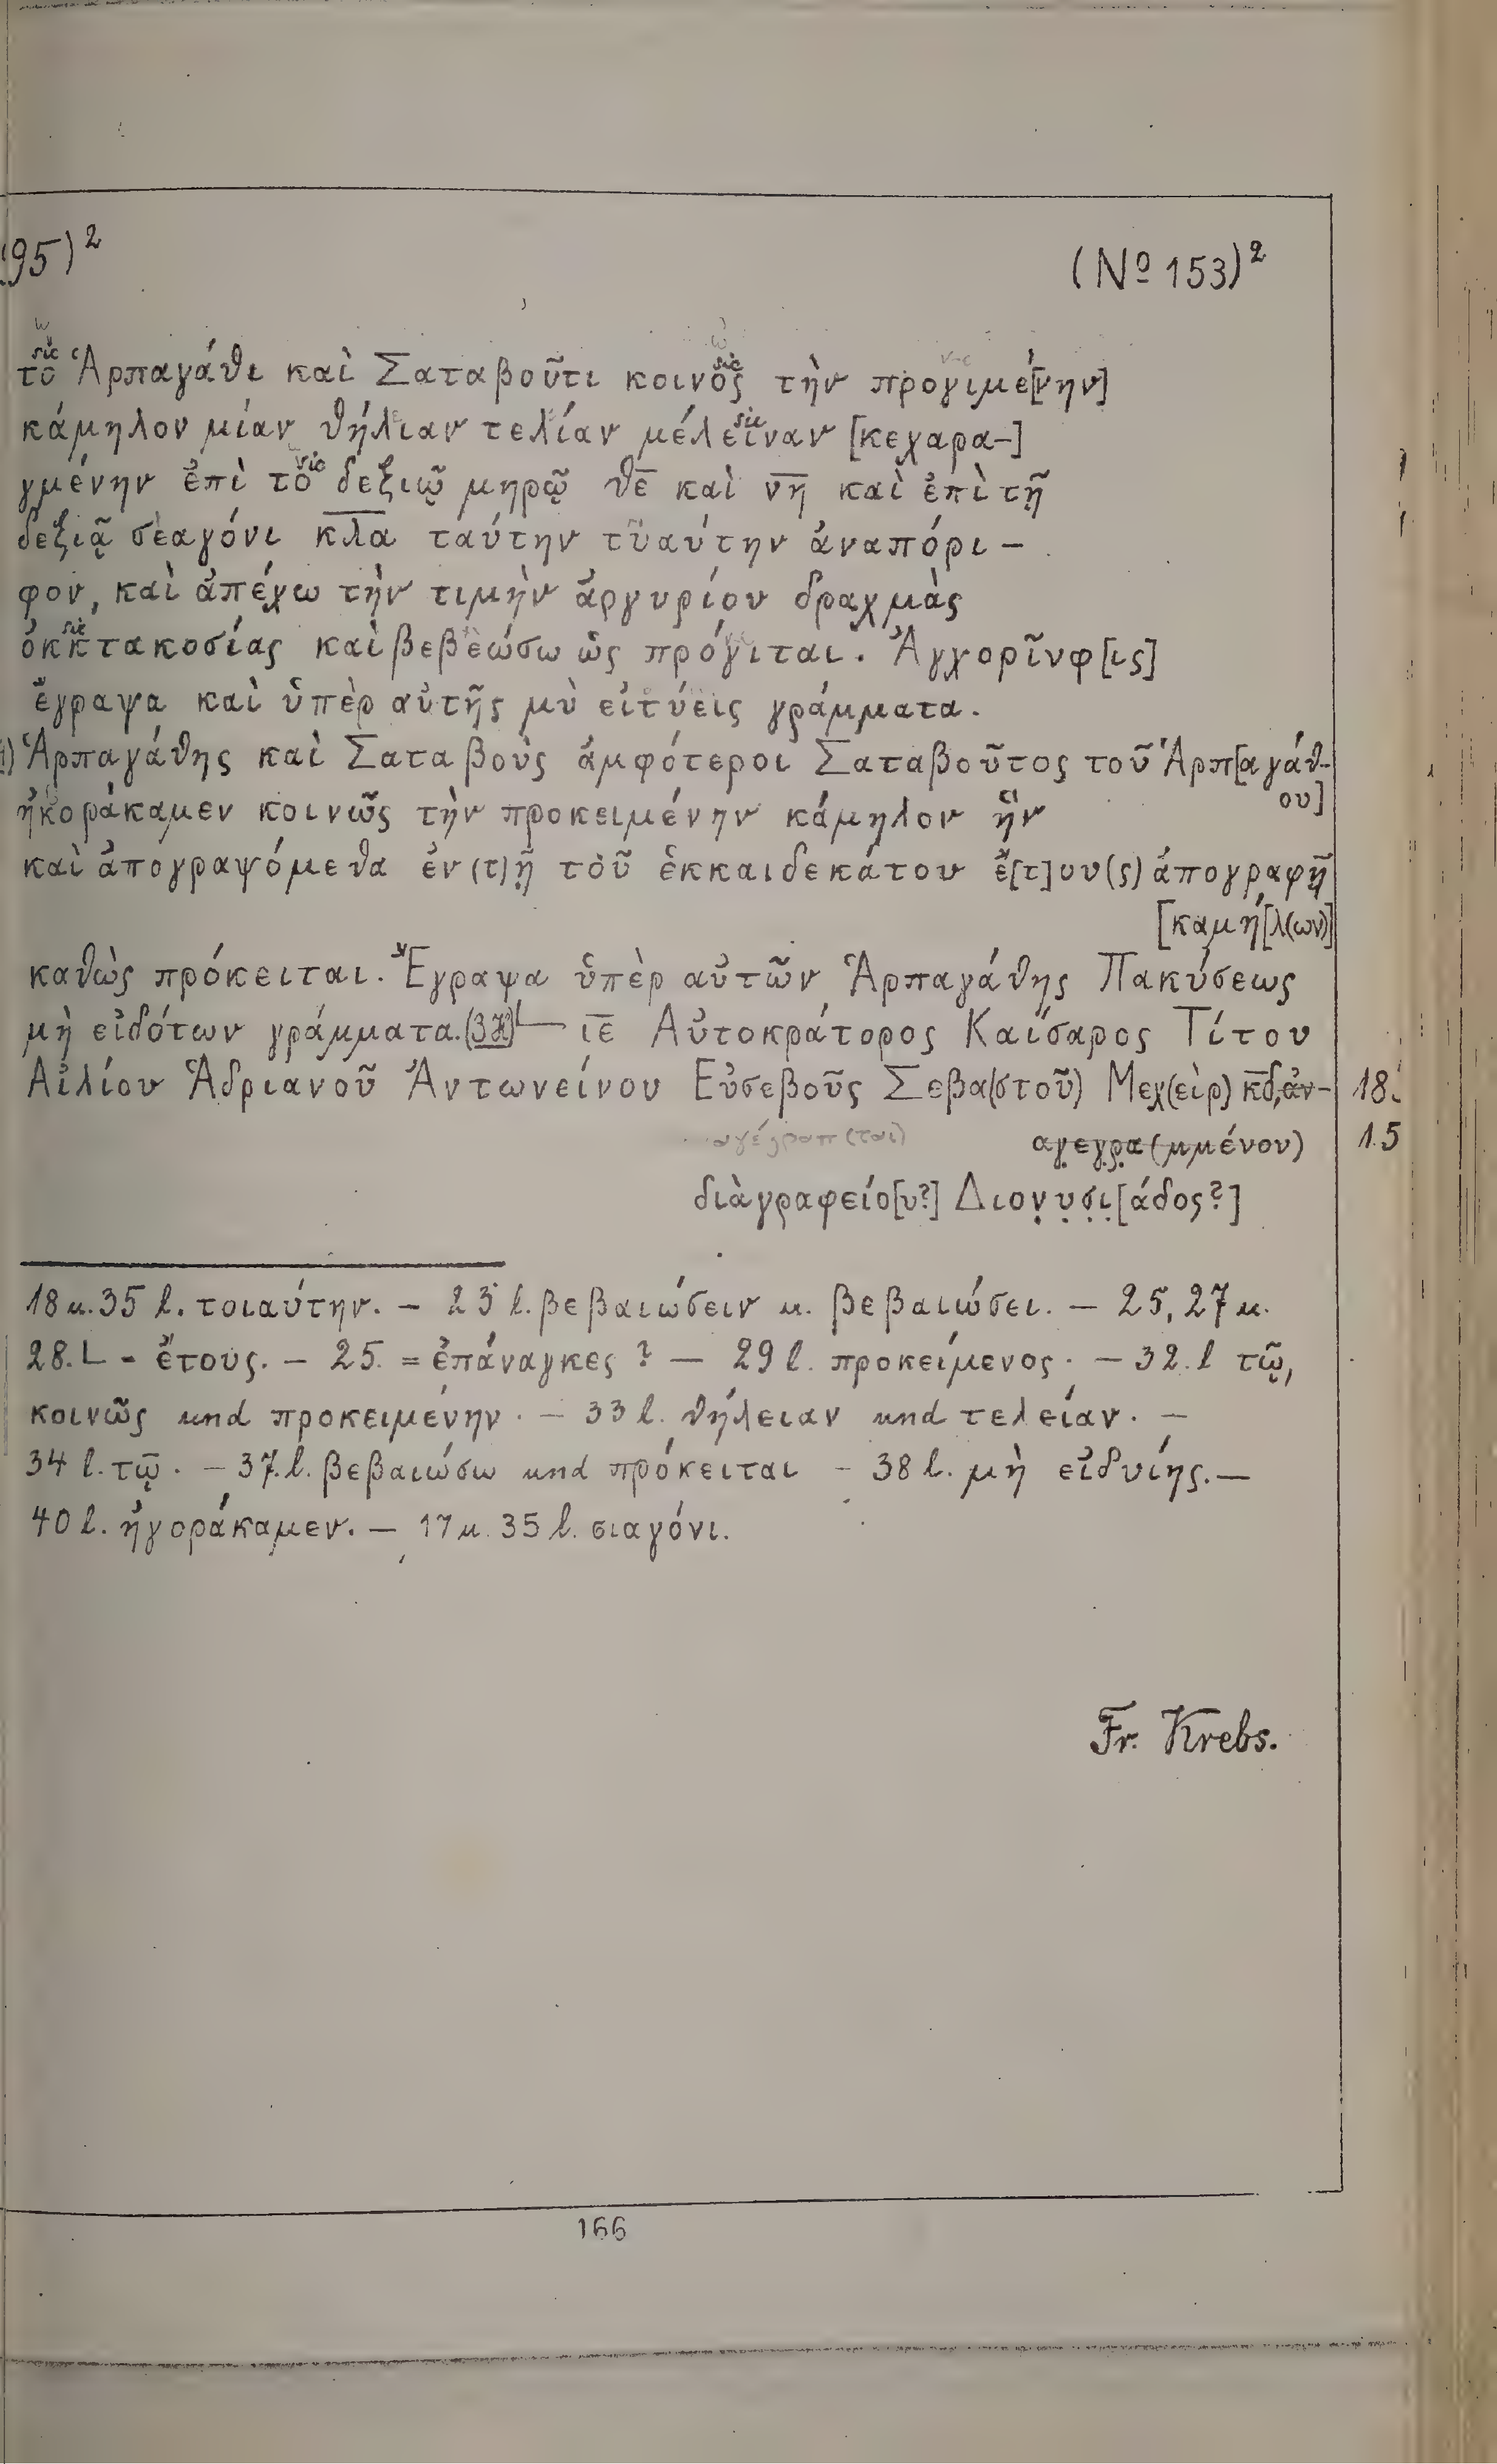 95)²
(Nº 153)²
τὸ Ἁρπαγάθι καὶ Σαταβοῦτι κοινο͂ς τὴν προγιμέ[νην]
κάμηλον μίαν θήλιαν τελίαν μέλειναν [κεχαρα-]
γμένην ἐπὶ τὸ δεξιῷ μηρῷ θε καὶ νη καὶ ἐπὶ τῇ
δεξιᾷ σεαγόνι κλα ταύτην τυαύτην ἀναπόρι-
φον, καὶ ἀπέχω τὴν τιμὴν ἀργυρίου δραχμὰς
ὀκκτακοσίας καὶ βεβεώσω ὡς πρόγιται. Ἀγχορῖνφ[ις]
ἔγραψα καὶ ὑπὲρ αὐτῆς μὺ εἰτύεις γράμματα.
Ἁρπαγάθης καὶ Σαταβοὺς ἀμφότεροι Σαταβοῦτος τοῦ Ἁρπ[αγάθ-
ου]
ἠκοράκαμεν κοινῶς τὴν προκειμένην κάμηλον ἣν
καὶ ἀπογραψόμεθα ἐν (τ)ῇ τοῦ ἑκκαιδεκάτου ἔ[τ]ου(ς) ἀπογραφῇ
[καμή[λ(ων)]
καθὼς πρόκειται. Ἔγραψα ὑπὲρ αὐτῶν Ἁρπαγάθης Πακύσεως
μὴ εἰδότων γράμματα. (3H) L ιε Αὐτοκράτορος Καίσαρος Τίτου
Αἰλίου Ἁδριανοῦ Ἀντωνείνου Εὐσεβοῦς Σεβα(στοῦ) Μεχ(εὶρ) κδ, ἀν-
18.
αγέγραπ(ται) αγεγρα(μμένον)
15
διὰ γραφείο[υ?] Διονυσι[άδος?]
18 u. 35 l. τοιαύτην. – 23 l. βεβαιώσειν u. βεβαιώσει. – 25, 27 u.
28. L = ἔτους. – 25. = ἐπάναγκες? – 29 l. προκείμενος. – 32. l τῷ,
κοινῶς und προκειμένην. – 33 l. θήλειαν und τελείαν. –
34 l. τῷ. – 37. l. βεβαιώσω und πρόκειται – 38 l. μὴ εἰδυίης. –
40 l. ἠγοράκαμεν. – 17 u. 35 l. σιαγόνι.
Fr. Krebs.
166